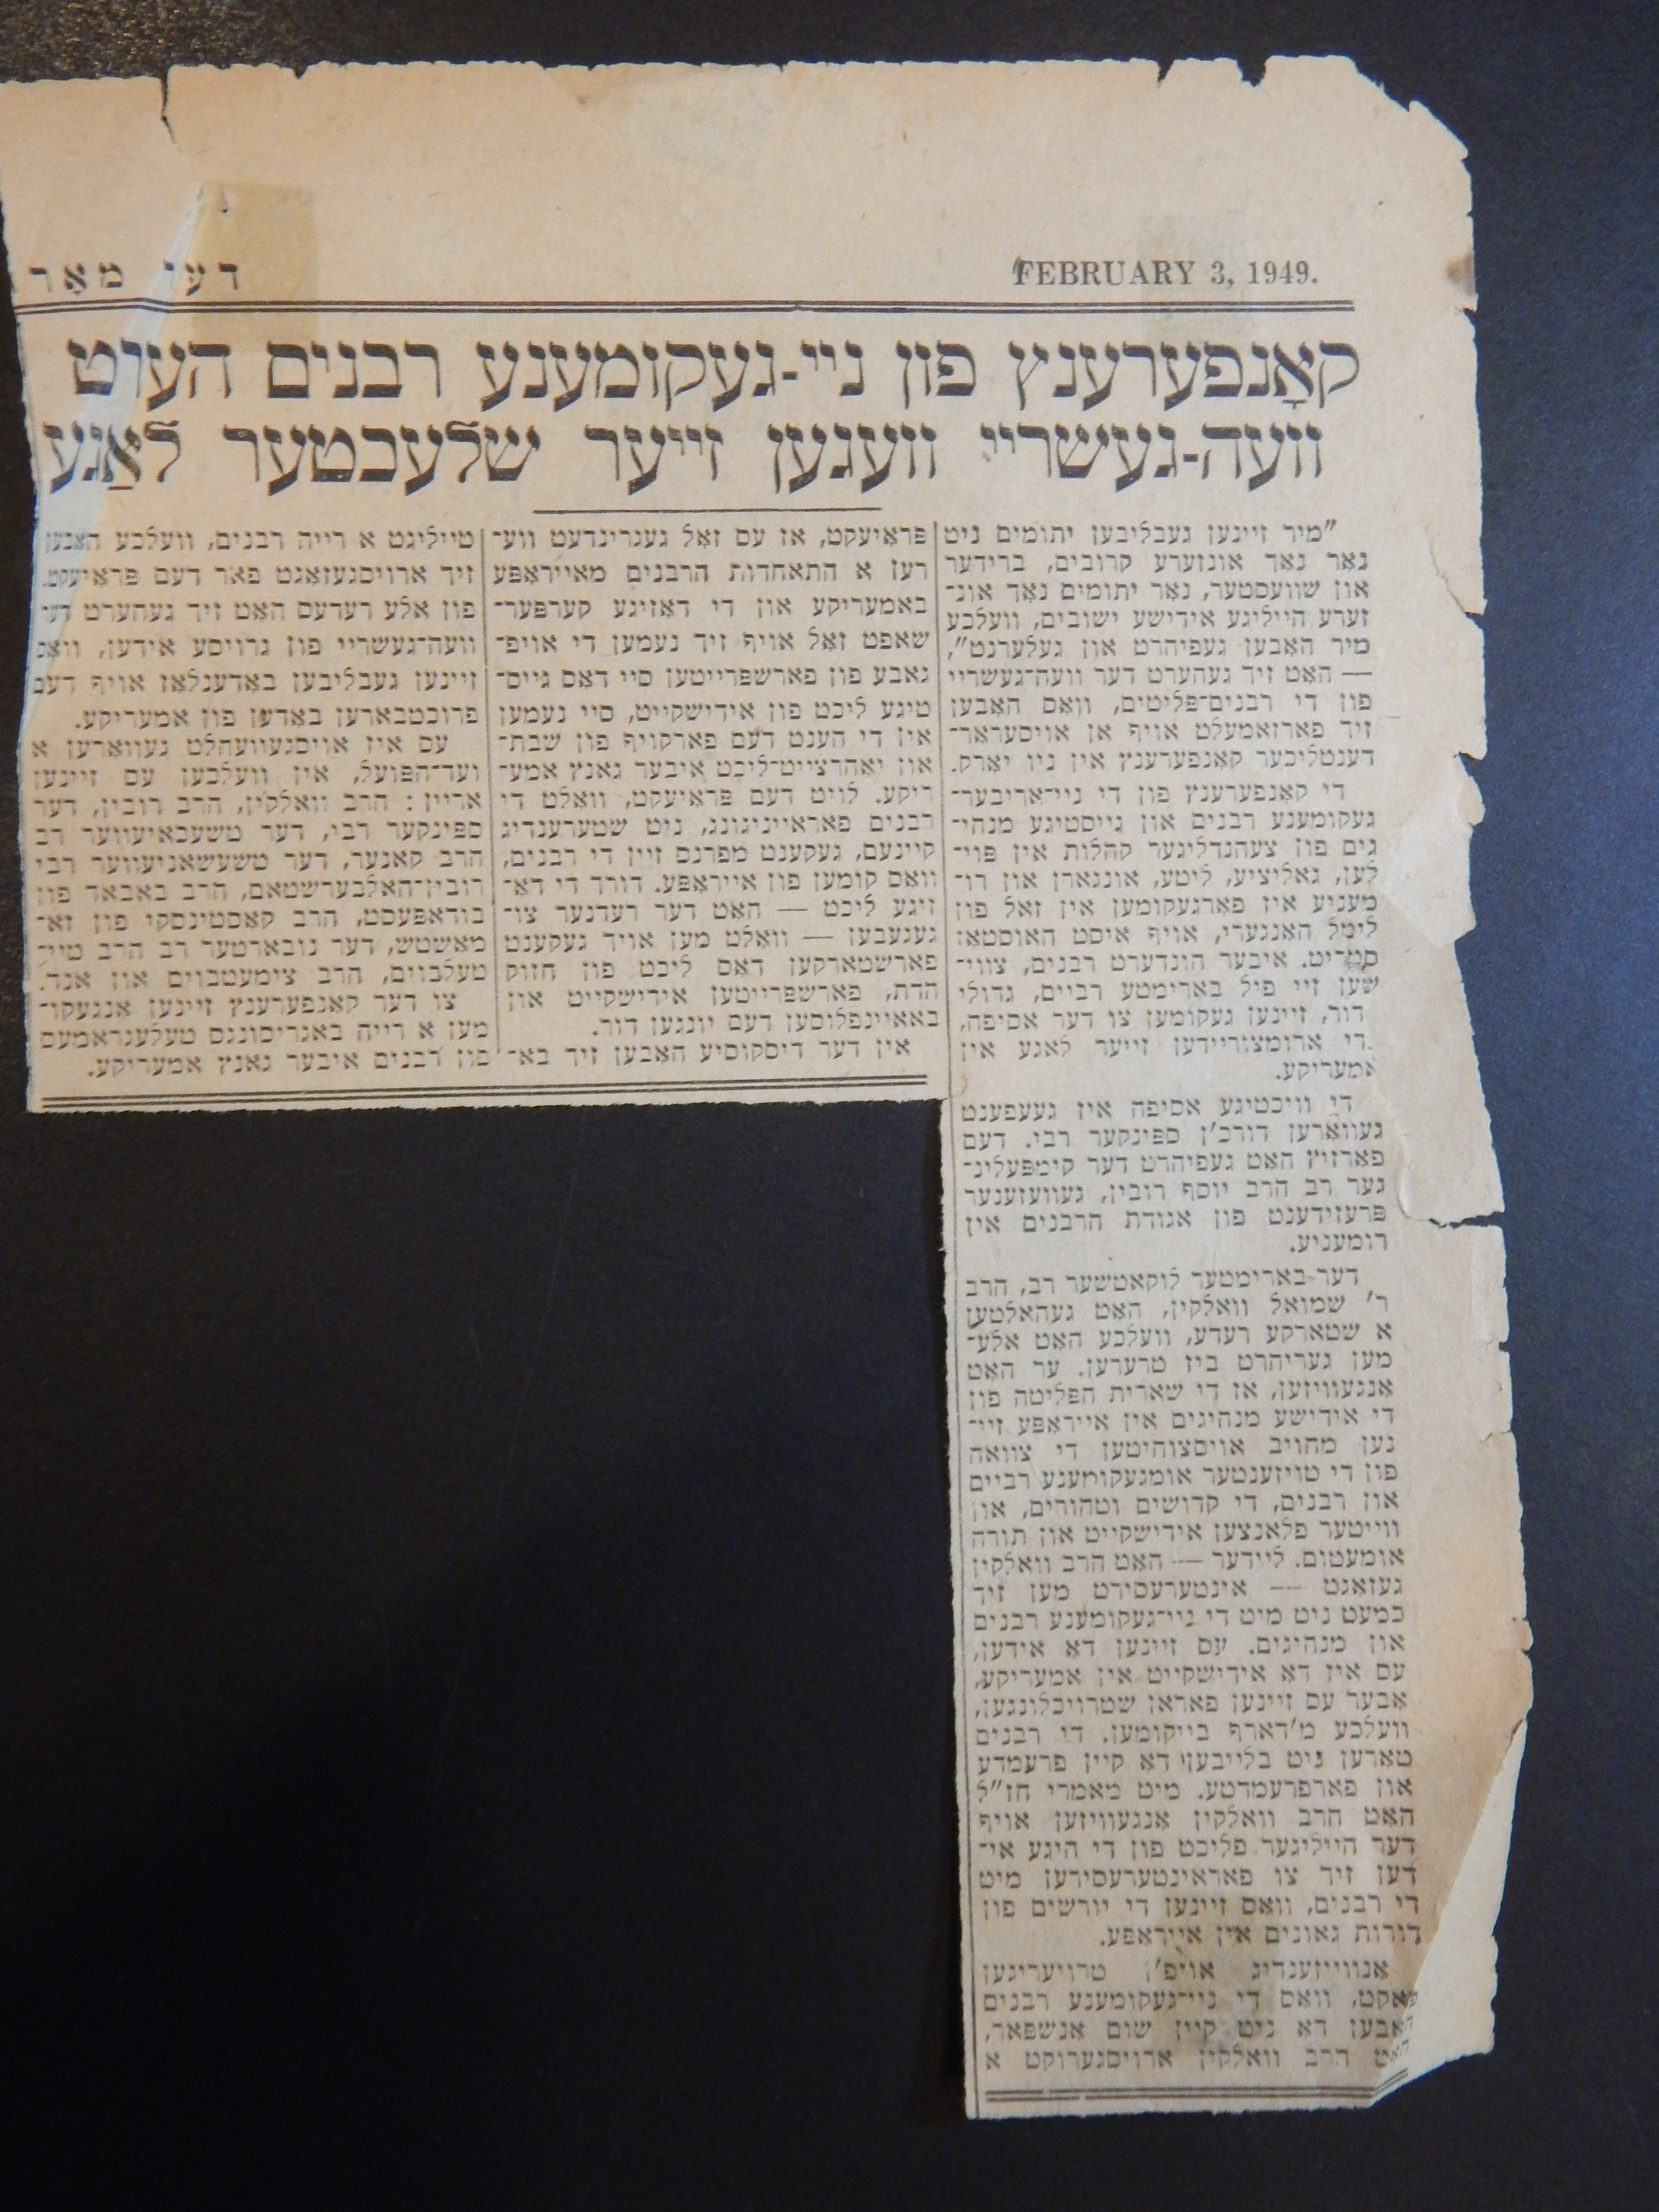 דער מאָר
FEBRUARY 3, 1949.
קאָנפערענץ פון ניי-געקומענע רבנים הערט
וועה-געשריי וועגען זייער שלעכטער לאַגע
"מיר זיינען געבליבען יתומים ניט
נאָר נאָך אונזערע קרובים, ברידער
און שוועסטער, נאָר יתומים נאָך אונ־
זערע הייליגע אידישע ישובים, וועלכע
מיר האָבען געפיהרט און געלערנט",
— האָט זיך געהערט דער וועה־געשריי
פון די רבנים־פליטים, וואָס האָבען
זיך פארזאמעלט אויף אן אויסעראָר־
דענטליכער קאָנפערענץ אין ניו יאָרק.
די קאָנפערענץ פון די ניי־אריבער־
געקומענע רבנים און גייסטיגע מנהי־
גים פון צעהנדליגער קהלות אין פוי־
לען, גאליציע, ליטע, אונגארן און רו־
מעניע איז פאָרגעקומען אין זאל פון
ליטל האנגערי, אויף איסט האוסטאָן
סטריט. איבער הונדערט רבנים, צווי־
שען זיי פיל בארימטע רביים, גדולי
דור, זיינען געקומען צו דער אסיפה,
די ארומצוריידען זייער לאגע אין
אמעריקע.
די וויכטיגע אסיפה איז געעפענט
געוואָרען דורכ'ן ספינקער רבי. דעם
פאָרזיץ האָט געפיהרט דער קימפעלינ־
גער רב הרב יוסף רובין, געוועזענער
פרעזידענט פון אגודת הרבנים אין
רומעניע.
דער בארימטער לוקאטשער רב, הרב
ר' שמואל וואלקין, האָט געהאלטען
א שטארקע רעדע, וועלכע האָט אלע־
מען געריהרט ביז טרערען. ער האָט
אָנגעוויזען, אז די שארית הפליטה פון
די אידישע מנהיגים אין אייראָפּע זיי־
נען מחויב אויסצוהיטען די צוואה
פון די טויזענטער אומגעקומענע רביים
און רבנים, די קדושים וטהורים, און
ווייטער פלאנצען אידישקייט און תורה
אומעטום. ליידער — האָט הרב וואלקין
געזאָגט — אינטערעסירט מען זיך
כמעט ניט מיט די ניי־געקומענע רבנים
און מנהיגים. עס זיינען דאָ אידען,
עס איז דאָ אידישקייט אין אמעריקע,
אָבער עס זיינען פאראן שטרויכלונגען,
וועלכע מ'דארף בייקומען. די רבנים
טאָרען ניט בלייבען דאָ קיין פרעמדע
און פארפרעמדטע. מיט מאמרי חז"ל
האָט הרב וואלקין אָנגעוויזען אויף
דער הייליגער פליכט פון די היגע אי־
דען זיך צו פאראינטערעסירען מיט
די רבנים, וואָס זיינען די יורשים פון
דורות גאונים אין אייראָפּע.
אָנווייזענדיג אויפ'ן טרויעריגען
פאקט, וואָס די ניי־געקומענע רבנים
האָבען דאָ ניט קיין שום אָנשפאר,
האָט הרב וואלקין ארויסגערוקט א
פּראָיעקט, אז עס זאָל געגרינדעט ווע־
רען א התאחדות הרבנים מאייראָפּע
באמעריקע און די דאָזיגע קערפּער־
שאפט זאָל אויף זיך נעמען די אויפ־
גאבע פון פארשפּרייטען סיי דאָס גייס־
טיגע ליכט פון אידישקייט, סיי נעמען
אין די הענט דעם פארקויף פון שבת־
און יאָהרצייט־ליכט איבער גאנץ אמע־
ריקע. לויט דעם פּראָיעקט, וואָלט די
רבנים פאראייניגונג, ניט שטערענדיג
קיינעם, געקענט מפרנס זיין די רבנים,
וואָס קומען פון אייראָפּע. דורך די דאָ־
זיגע ליכט — האָט דער רעדנער צו־
געגעבען — וואָלט מען אויך געקענט
פארשטארקען דאָס ליכט פון חזוק
הדת, פארשפּרייטען אידישקייט און
באאיינפלוסען דעם יונגען דור.
אין דער דיסקוסיע האָבען זיך בא־
טייליגט א רייה רבנים, וועלכע האָבען
זיך ארויסגעזאָגט פאר דעם פּראָיעקט.
פון אלע רעדעס האָט זיך געהערט דער
וועה־געשריי פון גרויסע אידען, וואָס
זיינען געבליבען באָדענלאָז אויף דעם
פרוכטבארען באָדען פון אמעריקע.
עס איז אויסגעוועהלט געוואָרען א
ועד־הפועל, אין וועלכען עס זיינען
אריין: הרב וואלקין, הרב רובין, דער
ספּינקער רבי, דער טשעבאיעווער רב
הרב קאנער, דער טשעשאניעווער רבי
רובין־האלבערשטאם, הרב באבאד פון
בודאפּעסט, הרב קאסטינסקי פון זא־
מאשטש, דער נובארטער רב הרב טיי־
טעלבוים, הרב צימעטבוים און אנד.
צו דער קאָנפערענץ זיינען אָנגעקו־
מען א רייה באגריסונגס טעלעגראמעס
פון רבנים איבער גאנץ אמעריקע.